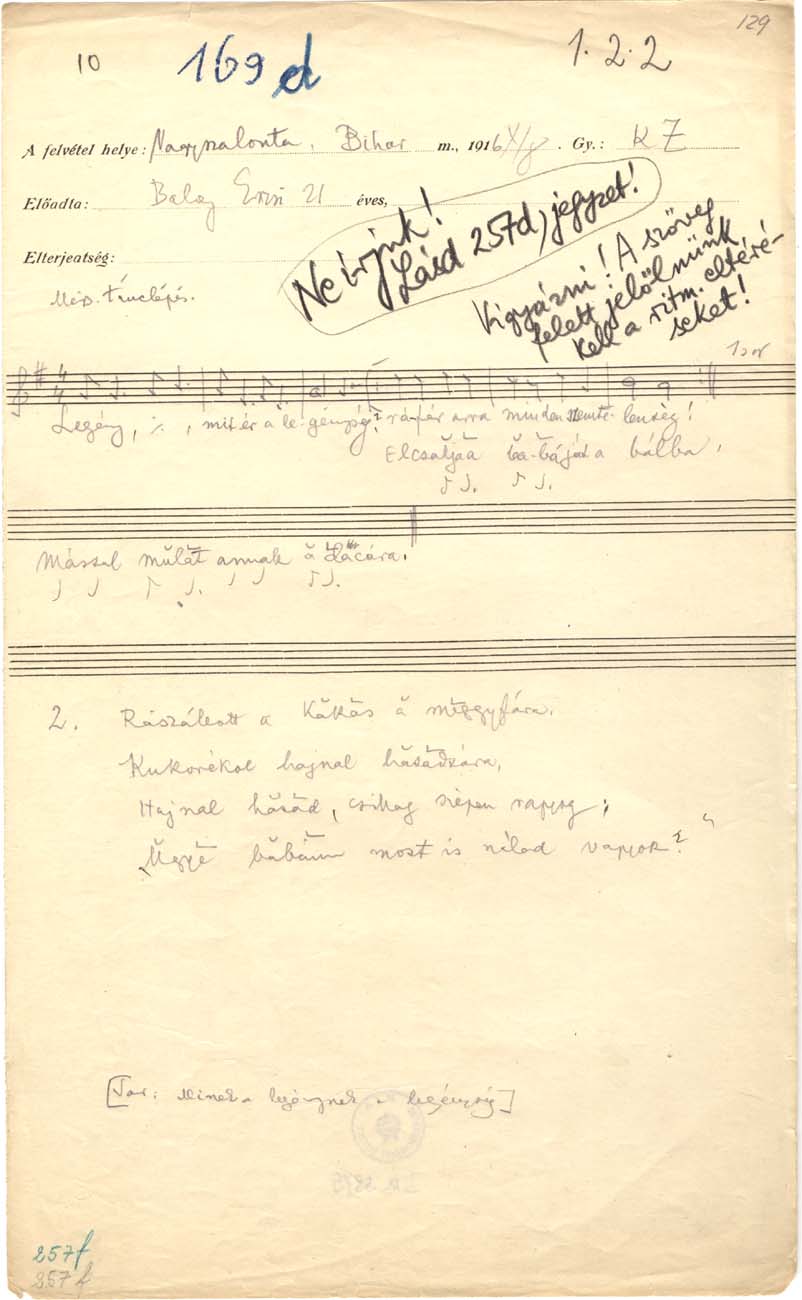 129
10
169 d
1. 2. 2
A felvétel helye: Nagyszalonta, Bihar m., 1916 X/8. Gy.: KZ
Előadta: Balog Erzsi 21 éves,
Ne írjuk!
Lásd 257d, jegyzet!
Elterjeatség:
Mérs. tánclépés.
Vigyázni! A szöveg
felett jelölnünk
kell a ritm. eltéré-
seket!
Legény, ·/., mit ér a le-génység? ráfér arra minden szemte-lenség!
Elcsalják ba-báját a bálba,
Mással mulat annak a dacára.
2. Rászállott a kakas a meggyfára,
Kukorékol hajnal hasadására,
Hajnal hasad, csillag szépen ragyog;
„Ugye babám most is nálad vagyok?"
[Var: Minek a legénynek a legénység]
257f
257f